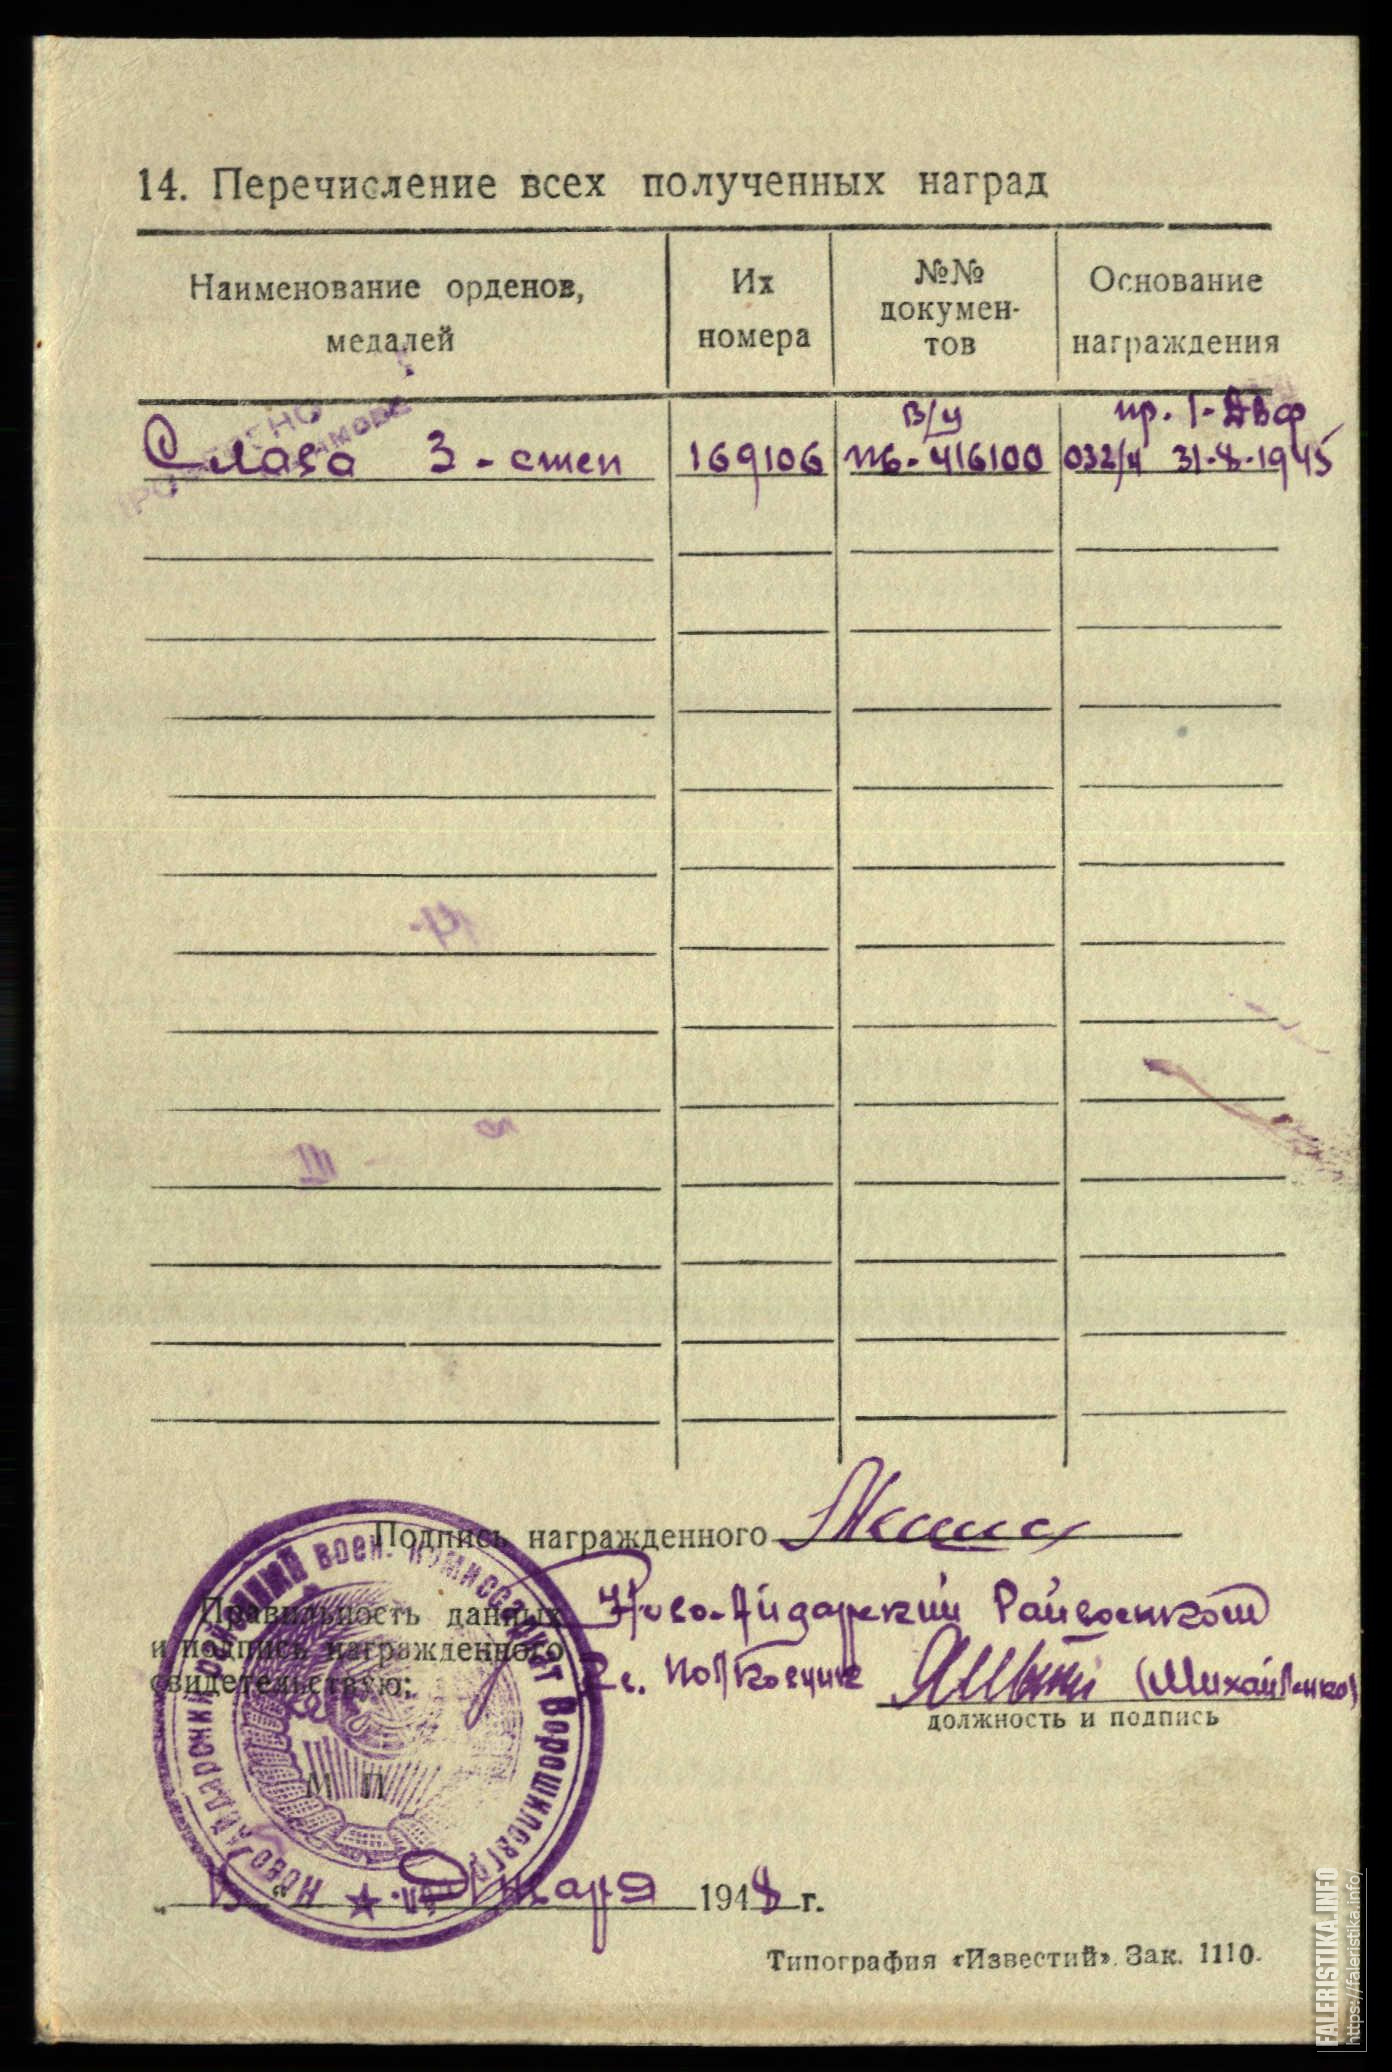 14. Перечисление всех полученных наград
Наименование орденов, медалей
Их номера
№№ докумен- тов
Основание награждения
в/у пр. 1-ДВФ
Слава 3-степ 169106 416100 032/н 31-8-1945
Подпись награжденного
Правильность данных
и подпись награжденного
свидетельствую:
Ново-Айдарский Райвоенком
Подковник (Михайленко)
должность и подпись
М П
Ново-Айдарский районный воен. комиссариат Ворошиловгр. обл.
января 1948 г.
Типография «Известий». Зак. 1110.
FALERISTIKA.INFO
https://faleristika.info/